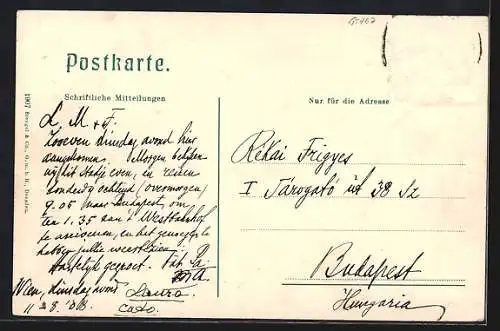 Postkarte.
Schriftliche Mitteilungen
Nur für die Adresse
1907 Stengel & Co., G.m.b.H., Dresden.
L. M + F.
Zooeven dinsdag avond hier
aangekomen. Morgen bekijken
wij het stadje even, en reizen
donderdag ochtend (overmorgen)
9.05 naar Budapest, om
ten 1.35 aan 't Westbahnhof
te arriveeren, en het genoegen te
hebben jullie weer te zien.
Hartelijk gegroet. Tat Pa
Ma
Wien, dinsdag avond Laura
11 2 8. Cato.
Rékai Frigyes
I Tárogató út 38 Sz
Budapest
Hungaria